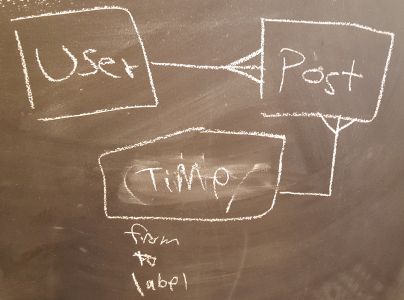 User
Post
(Time)
from
to
label